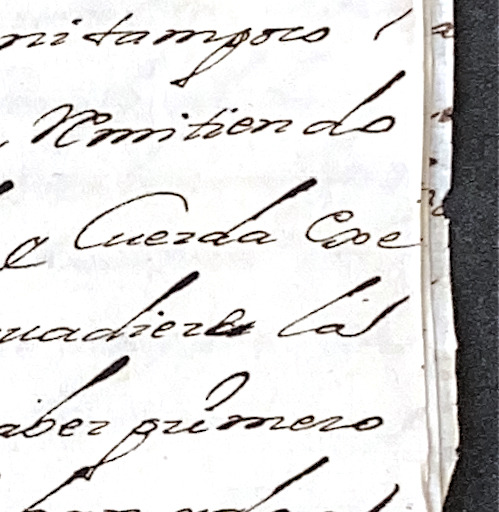 ni tampoco
Remitiendo
e Cuerda Exe
uadiere las
aber primero